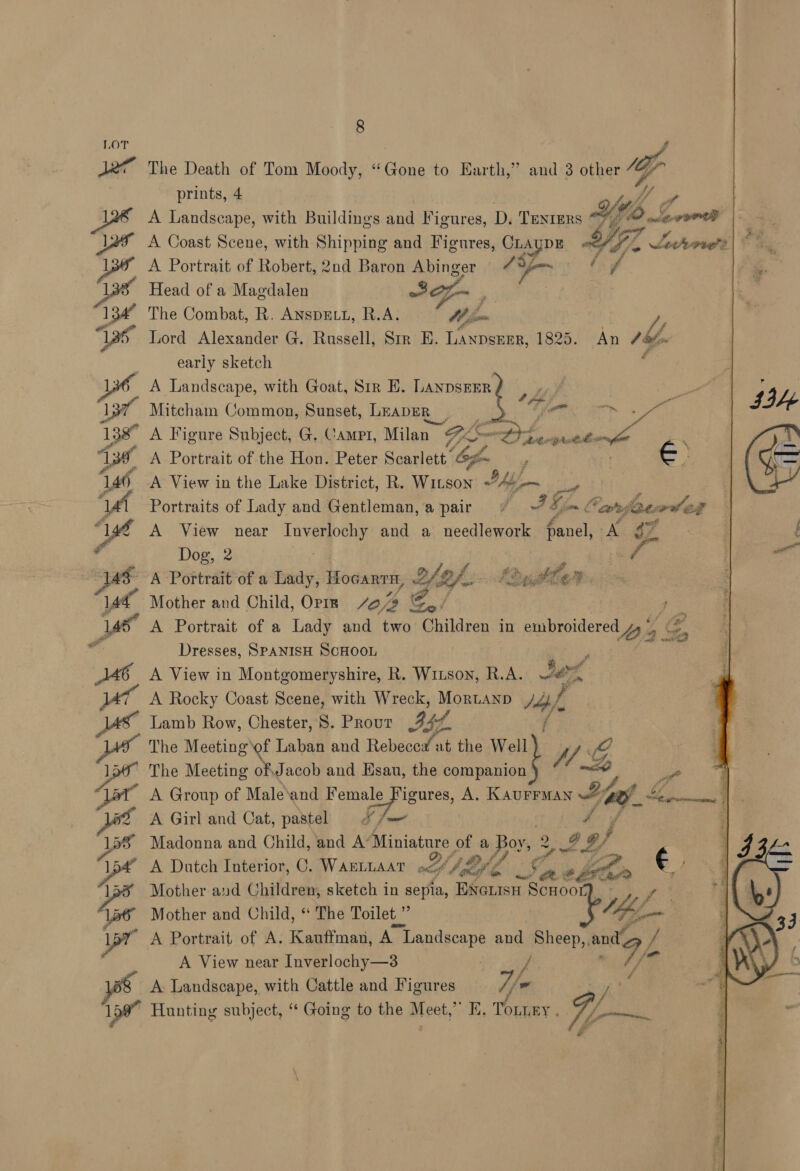 8
LOT
127 The Death of Tom Moody, “Gone to Earth,” and 3 other
prints, 4
128 A Landscape, with Buildings and Figures, D. TENIERS
129 A Coast Scene, with Shipping and Figures, CLAYDE
A Portrait of Robert, 2nd Baron Abinger
Head of a Magdalen
134 The Combat, R. ANSDELL, R.A.
135 Lord Alexander G. Russell, SIR E. LANDSEER, 1825. An
early sketch
136 A Landscape, with Goat, SIR E. LANDSEER
137 Mitcham Common, Sunset, LEADER
138 A Figure Subject, G. CAMPI, Milan
139 A Portrait of the Hon. Peter Scarlett
140 A View in the Lake District, R. WILSON
141 Portraits of Lady and Gentleman, a pair
142 A View near Inverlochy and a needlework panel, A
Dog, 2
143 A Portrait of a Lady, HOGARTH,
144 Mother and Child, OPIE
145 A Portrait of a Lady and two Children in embroidered
Dresses, SPANISH SCHOOL
146 A View in Montgomeryshire, R. WILSON, R.A.
147 A Rocky Coast Scene, with Wreck, MORLAND
148 Lamb Row, Chester, S. PROUT
149 The Meeting of Laban and Rebecca at the Well
150 The Meeting of Jacob and Esau, the companion
151 A Group of Male and Female Figures, A. KAUFFMAN
152 A Girl and Cat, pastel
153 Madonna and Child, and A Miniature of a Boy, 2
154 A Dutch Interior, C. WAELLAAT
155 Mother and Children, sketch in sepia, ENGLISH SCHOOL
156 Mother and Child, “The Toilet”
157 A Portrait of A. Kauffman, A Landscape and Sheep, and
A View near Inverlochy—3
158 A Landscape, with Cattle and Figures
159 Hunting subject, “Going to the Meet,” E. TOLLEY